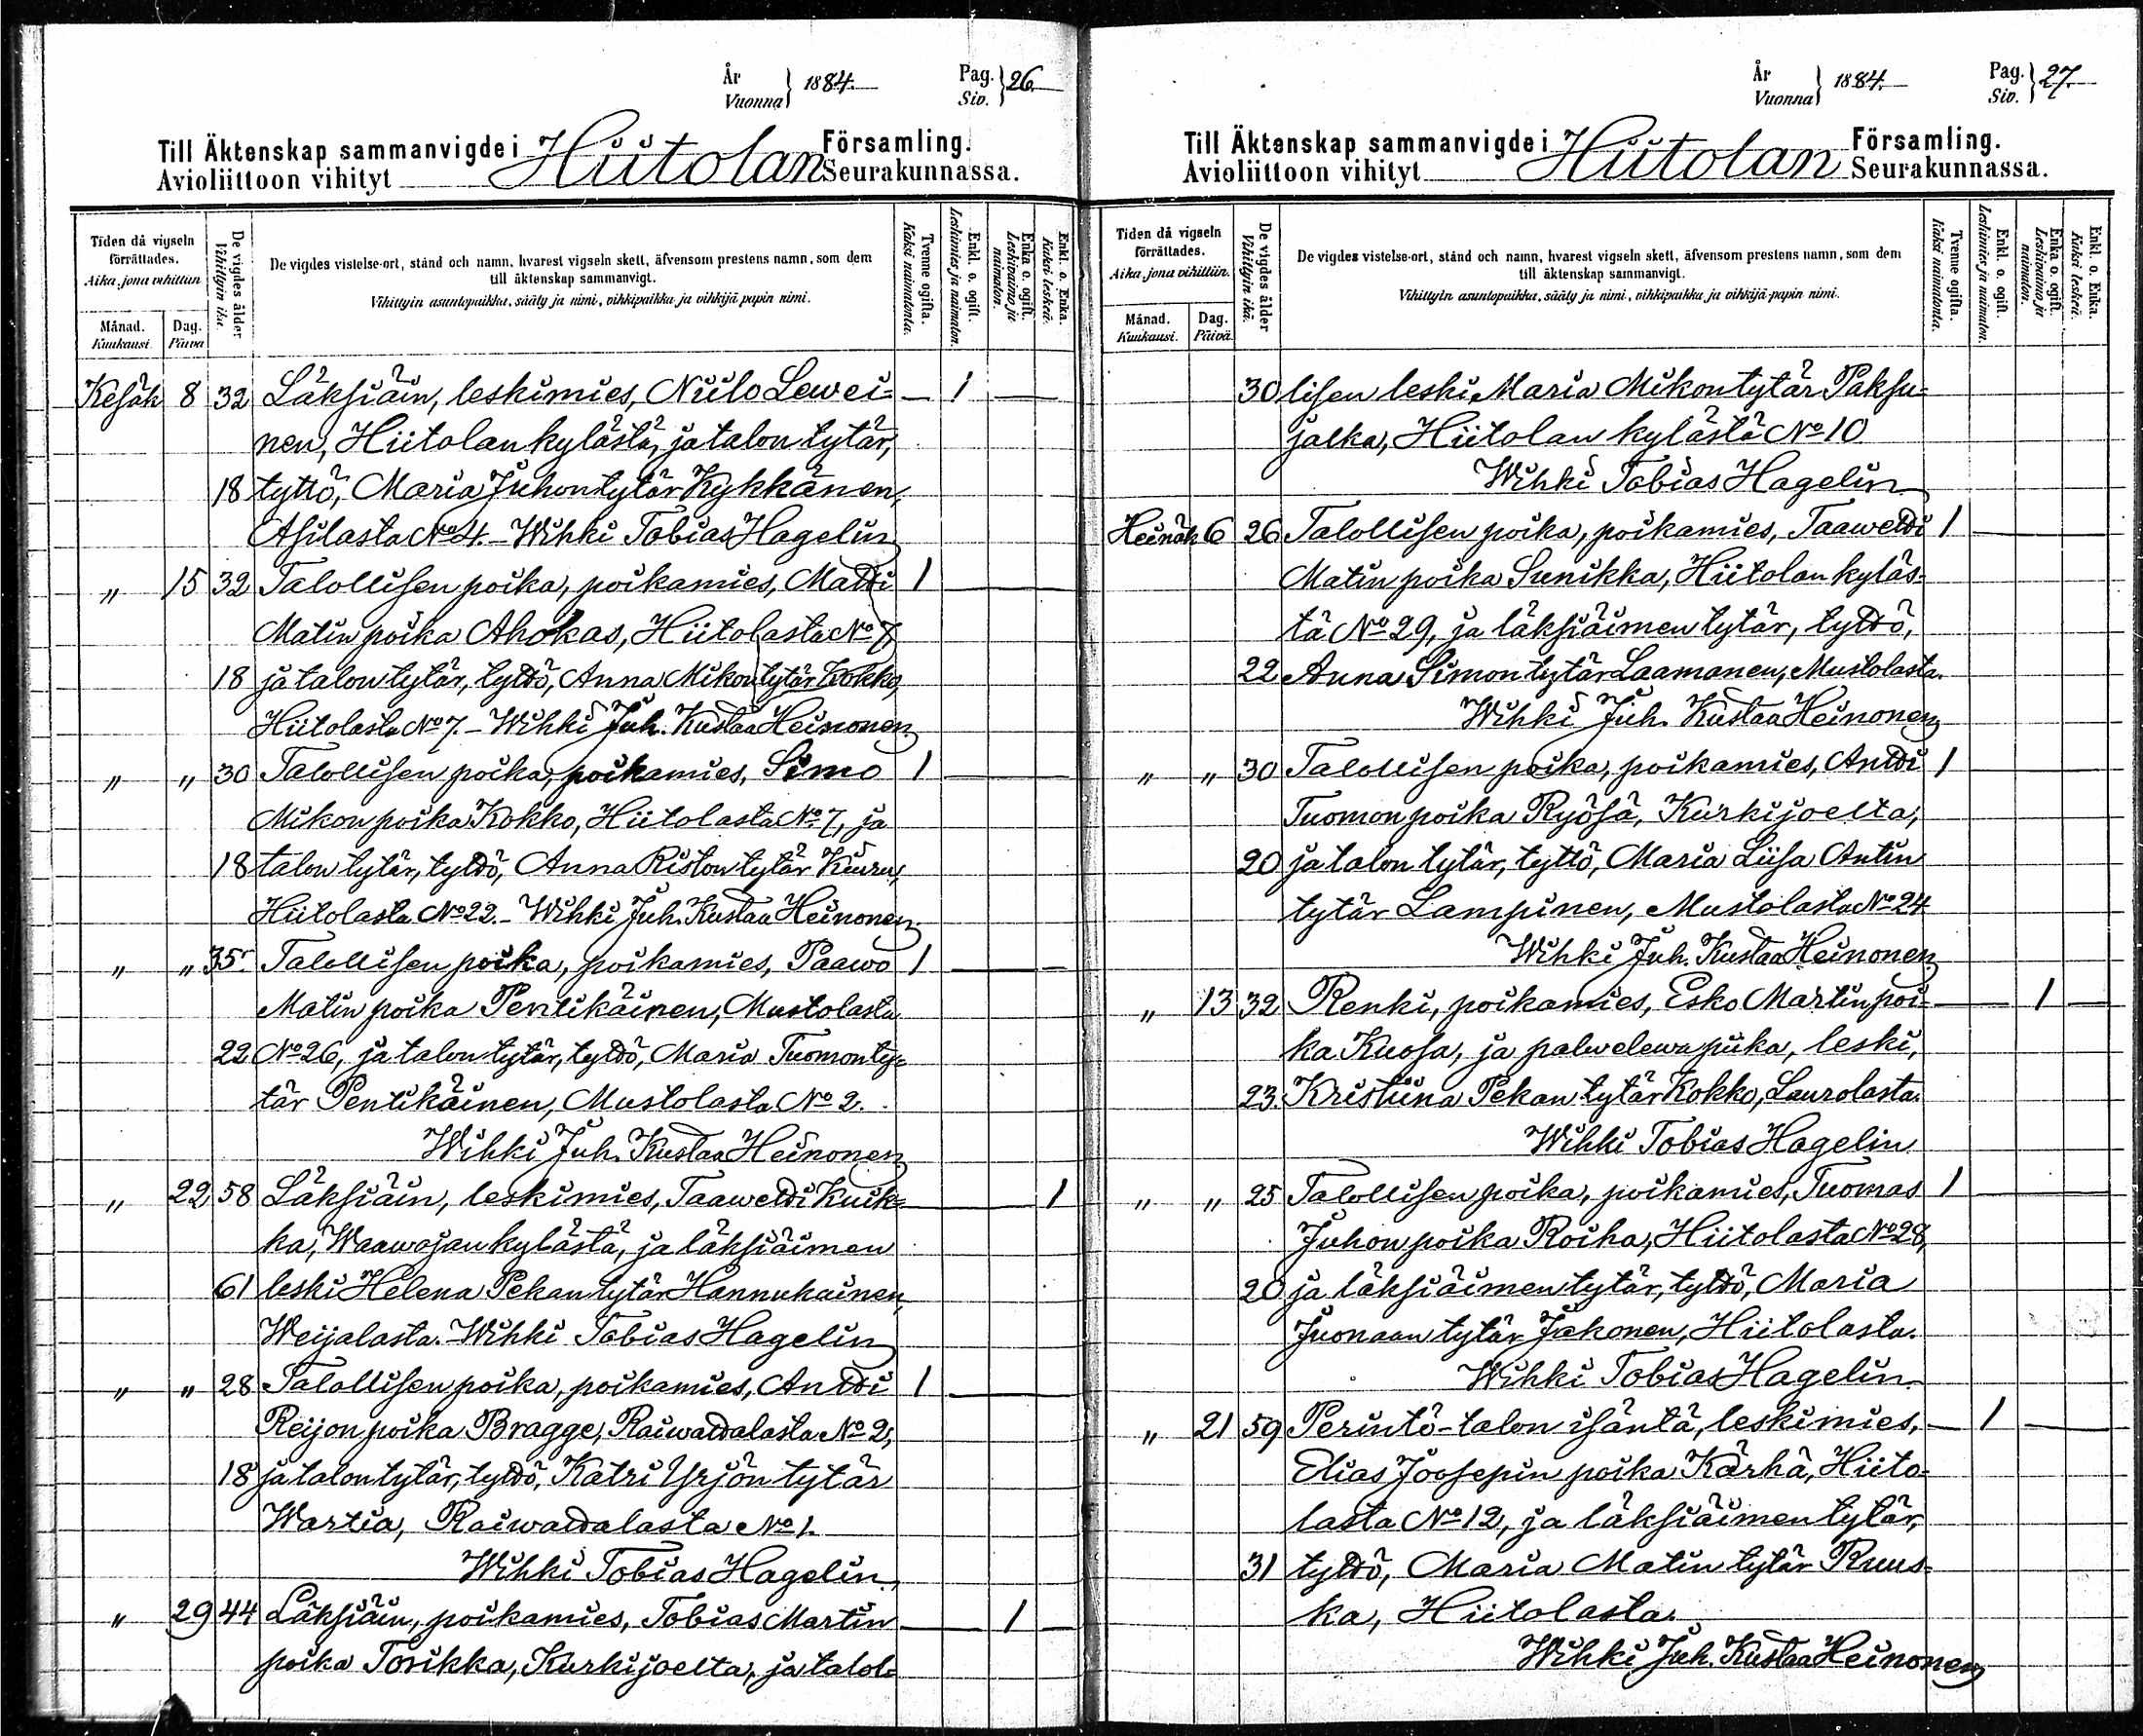 År
Vuonna } 1884.
Pag.
Siv. } 26
Till Äktenskap sammanvigde i Hiitolan Församling.
Avioliittoon vihityt Seurakunnassa.
Tiden då vigseln förrättades.
Aika, jona vihittiin
Månad.
Kuukausi.
Dag.
Päivä
De vigdes ålder
Vihittyin ikä.
De vigdes vistelse-ort, stånd och namn, hvarest vigseln skett, äfvensom prestens namn, som dem
till äktenskap sammanvigt.
Vihittyin asuntopaikka, sääty ja nimi, vihkipaikka ja vihkijä papin nimi.
Tvenne ogifta.
Kaksi naimatonta.
Enkl. o. ogift.
Leskimies ja naimaton.
Enka o. ogift.
Leskivaimo ja naimaton.
Enkl. o. Enka.
Kaksi leskeä.
Kesäk 8 32 Läksiäin, leskimies, Niilo Lewei= — 1 —
nen, Hiitolan kylästä, ja talon tytär,
18 tyttö, Maria Juhontytär Kykkänen,
Asilasta No 4. – Wihki Tobias Hagelin
" 15 32 Talollisen poika, poikamies, Matti 1 —
Matin poika Ahokas, Hiitolasta No 7,
18 ja talon tytär, tyttö, Anna Mikon tytär Kokko,
Hiitolasta No 7. – Wihki Juh. Kustaa Heinonen
" " 30 Talollisen poika, poikamies, Simo 1 —
Mikon poika Kokko, Hiitolasta No 7, ja
18 talon tytär, tyttö, Anna Riston tytär Kiuru,
Hiitolasta No 22. – Wihki Juh. Kustaa Heinonen
" " 35 Talollisen poika, poikamies, Paawo 1 —
Matin poika Pentikäinen, Mustolasta
22 No 26, ja talon tytär, tyttö, Maria Tuomon ty=
tär Pentikäinen, Mustolasta No 2.
Wihki Juh. Kustaa Heinonen
" 22 58 Läksiäin, leskimies, Taawetti Kuik= — 1
ka, Waawojan kylästä, ja läksiäimen
61 leski Helena Pekan tytär Hannukainen,
Weijalasta. Wihki Tobias Hagelin
" " 28 Talollisen poika, poikamies, Antti 1 —
Reijon poika Bragge, Raiwattalasta No 2,
18 ja talon tytär, tyttö, Katri Yrjön tytär
Wartia, Raiwattalasta No 1.
Wihki Tobias Hagelin
" 29 44 Läksiäin, poikamies, Tobias Martin — 1 —
poika Torikka, Kurkijoelta, ja talol=
År
Vuonna } 1884.
Pag.
Siv. } 27.
Till Äktenskap sammanvigde i Hiitolan Församling.
Avioliittoon vihityt Seurakunnassa.
Tiden då vigseln förrättades.
Aika, jona vihittiin.
Månad.
Kuukausi.
Dag.
Päivä.
De vigdes ålder
Vihittyin ikä.
De vigdes vistelse-ort, stånd och namn, hvarest vigseln skett, äfvensom prestens namn, som dem
till äktenskap sammanvigt.
Vihittyin asuntopaikka, sääty ja nimi, vihkipaikka ja vihkijä-papin nimi.
Tvenne ogifta.
Kaksi naimatonta.
Enkl. o. ogift.
Leskimies ja naimaton.
Enka o. ogift.
Leskivaimo ja naimaton.
Enkl. o. Enka.
Kaksi leskeä.
30 lisen leski Maria Mikontytär Paksu=
jalka, Hiitolan kylästä No 10
Wihki Tobias Hagelin
Heinäk 6 26 Talollisen poika, poikamies, Taawetti 1 —
Matin poika Sunikka, Hiitolan kyläs=
tä No 29, ja läksiäimen tytär, tyttö,
22 Anna Simon tytär Laamanen, Mustolasta.
Wihki Juh. Kustaa Heinonen
" " 30 Talollisen poika, poikamies, Antti 1 —
Tuomon poika Ryösä, Kurkijoelta,
20 ja talon tytär, tyttö, Maria Liisa Antin
tytär Lampinen, Mustolasta No 24
Wihki Juh. Kustaa Heinonen
" 13 32 Renki, poikamies, Esko Martin poi= — 1 —
ka Kuosa, ja palwelewa piika, leski,
23. Kristiina Pekan tytär Kokko, Laurolasta.
Wihki Tobias Hagelin
" " 25 Talollisen poika, poikamies, Tuomas 1 —
Juhon poika Roiha, Hiitolasta No 28,
20 ja läksiäimen tytär, tyttö, Maria
Juonaan tytär Jäkonen, Hiitolasta.
Wihki Tobias Hagelin
" 21 59 Perintö-talon isäntä, leskimies, — 1 —
Elias Joosepin poika Kärhä, Hiito=
lasta No 12, ja läksiäimen tytär,
31 tyttö, Maria Matin tytär Ruus=
ka, Hiitolasta.
Wihki Juh. Kustaa Heinonen